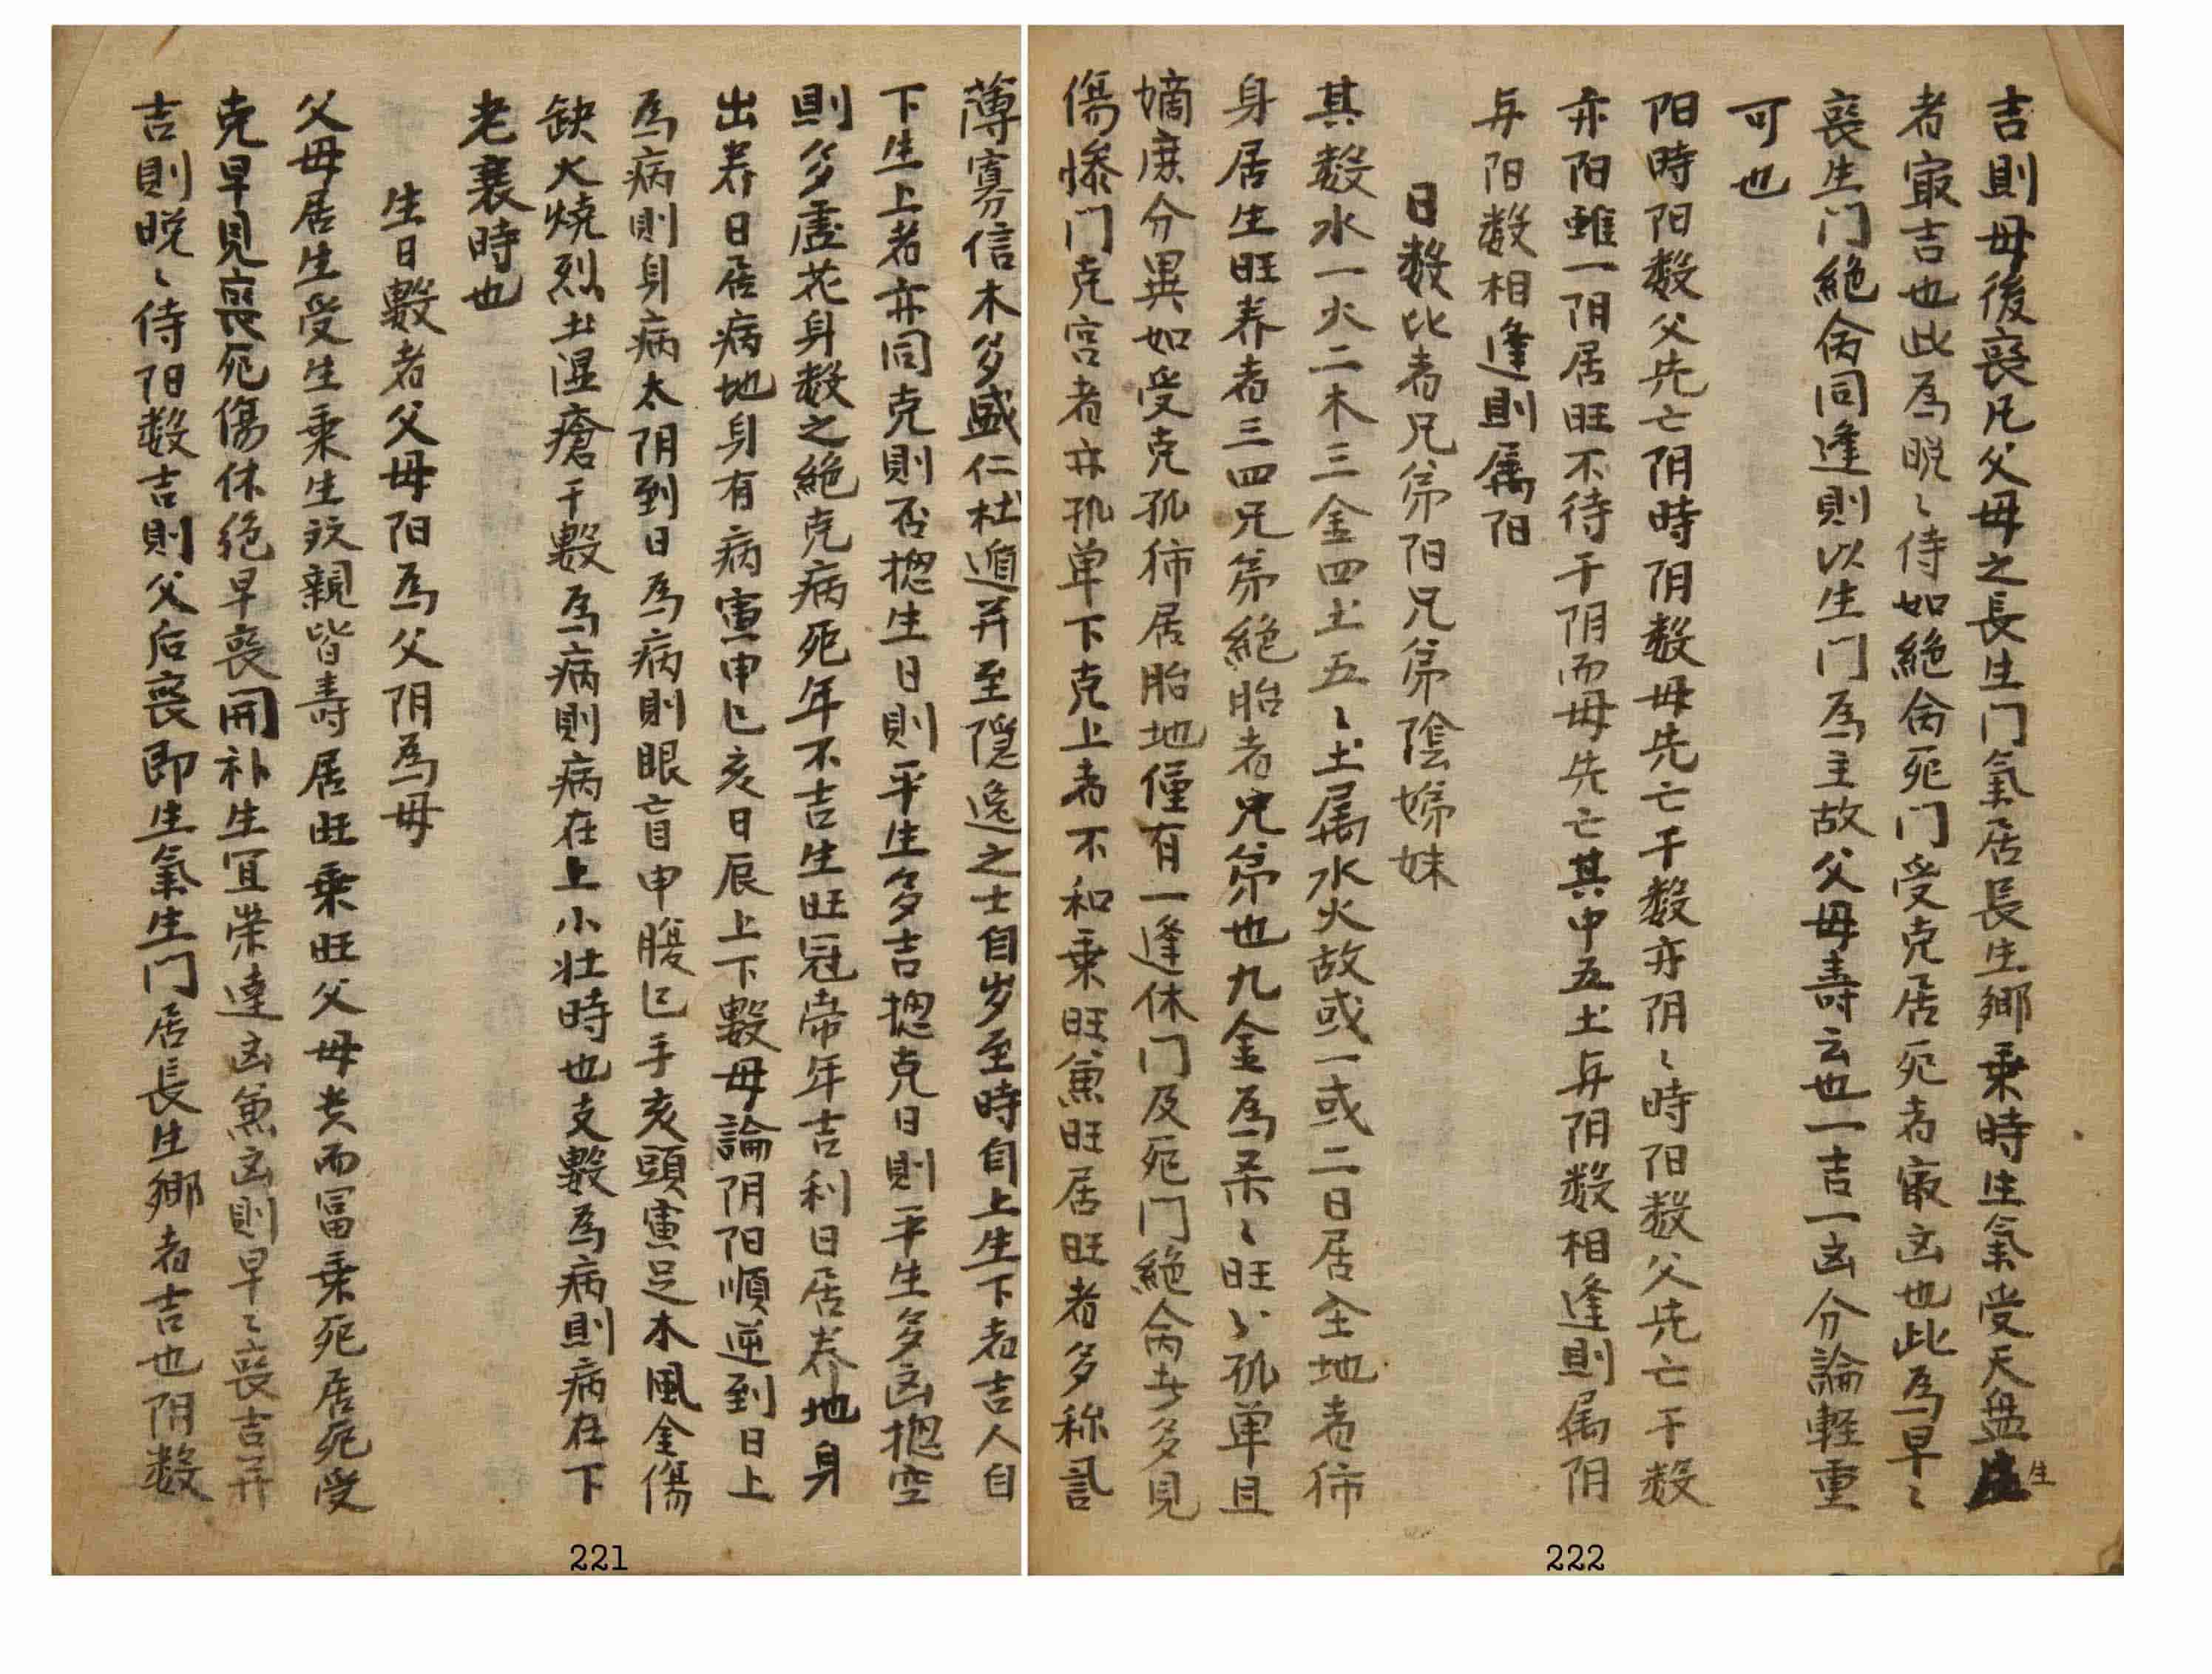 薄寡信木多盛仁杜遁并至隱逸之士自岁至時自上生下者吉人自
下生上者亦同克則否摠生日則平生多吉摠克日則平生多凶摠空
則多虛花身数之絕克病死年不吉生旺冠帝年吉利日居养地身
出养日居病地身有病寅申巳亥日辰上下數毋論阴阳順逆到日上
為病則身病太阴到日為病則眼盲申腹巳手亥頭寅足木風金傷
缺火燒烈土温瘡干數為病則病在上小壮時也支數為病則病在下
老衰時也
生日數者父母阳為父阴為母
父母居生受生乘生孜親皆壽居旺乘旺父母贵而冨乘死居死受
克早見喪死傷休絕早喪開补生宜荣達凶𠔥凶則早〻喪吉并
吉則晚〻侍阳数吉則父后喪即生氣生门居長生鄉者吉也阴数
吉則母後喪凡父母之長生门氣居長生鄉乘時生氣受天盘生
者㝡吉也此為晚〻侍如絕侌死门受克居死者㝡凶也此為早〻
喪生门絕侌同逢則以生门為主故父母壽云也一吉一凶分論輕重
可也
阳時阳数父先亡阴時阴数母先亡干数亦阴〻時阳数父先亡干数
亦阳雖一阴居旺不待于阴而母先亡其中五土与阴数相逢則属阴
与阳数相逢則属阳
日数比者兄弟阳兄弟陰姊妹
其数水一火二木三金四土五〻土属水火故或一或二日居全地者㐲
身居生旺养者三四兄弟絕胎者兄弟也九金為柔〻旺〻孤单且
嫡庶分異如受克孤㐲居胎地僅有一逢休门及死门絕侌者多見
傷慘门克宮者亦孤单下克上者不和乘旺𠔥旺居旺者多称